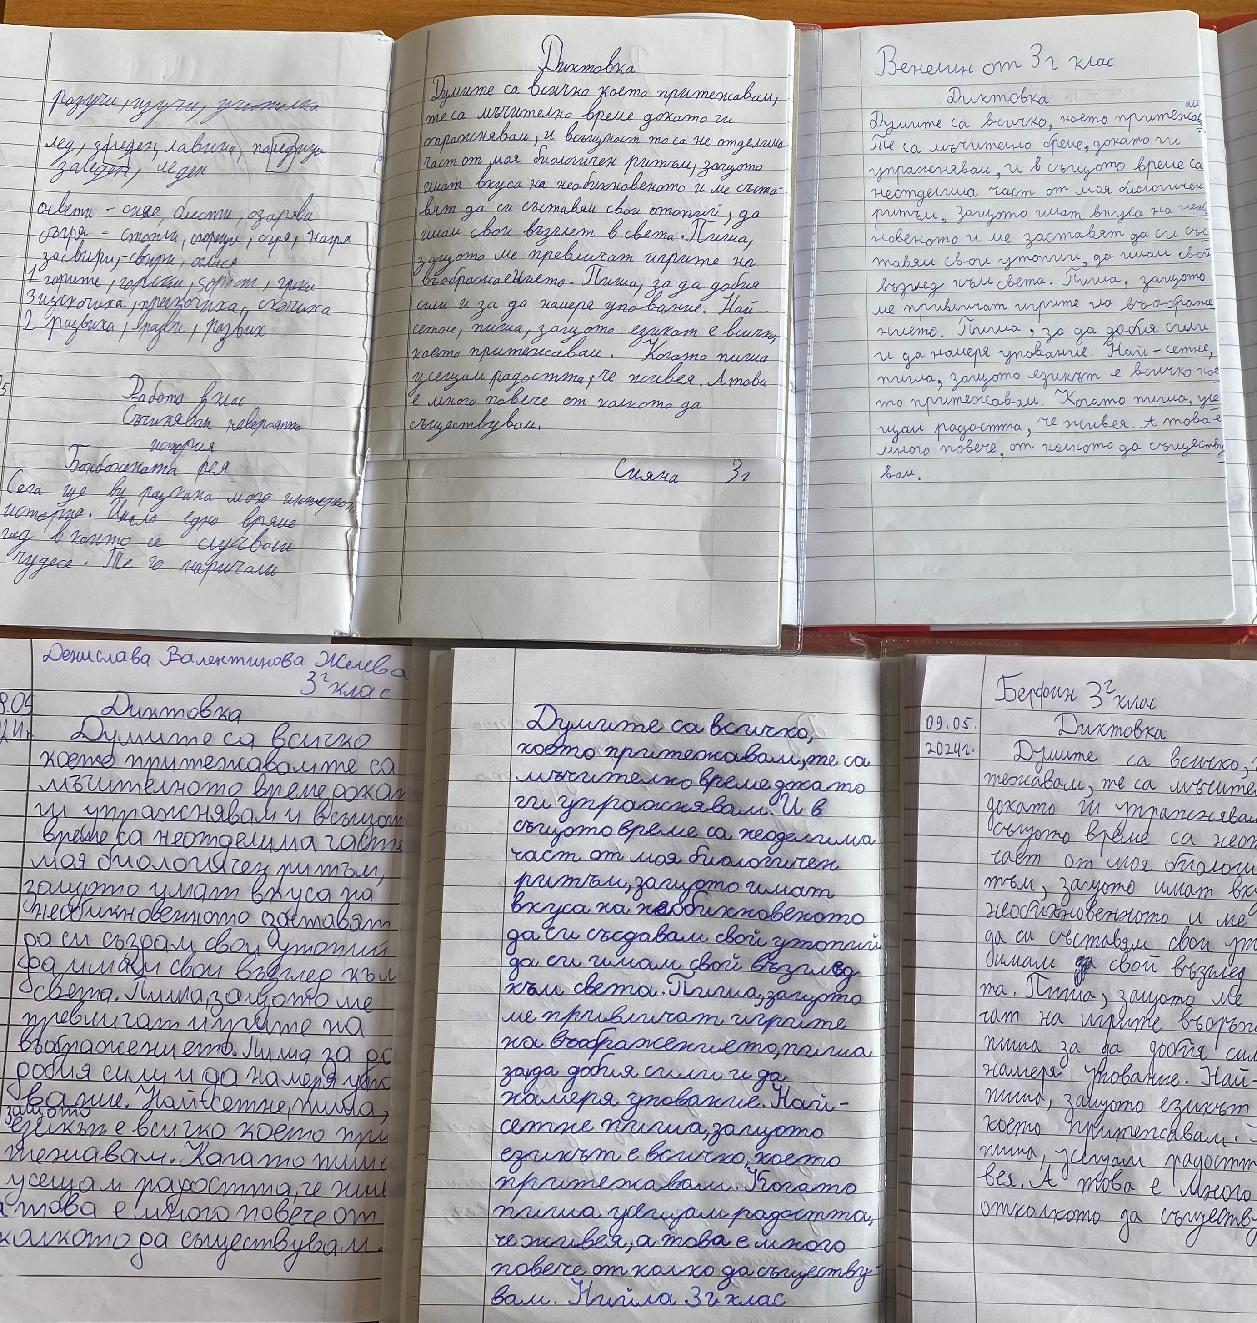 разучи, изучи, училило
лед, зареден, лавина,
заледен, леден
освети - сияе, блести, озарява
съгря - стопли, сгорещи, сгря, нагря
засвири, свири,
1 горите, горски, горати, гори
3 изкочиха, прескочиха, скочиха
2 развиха, разви, развих
Работа в клас
Съчинявам невероятна
история
Сега ще ви разкажа много интересна
история. Имало едно време
град в който се случвали
чудеса. Те го наричали
Диктовка
Думите са всичко което притежавам,
те са мъчително време докато ги
упражнявам, и всъщност то са не отделима
част от моя биологичен ритъм, защото
имат вкуса на необикновеното и ме съста-
вят да си съставям свои утопий, да
имам свои възглет в света. Пиша,
защото ме превличат игрите на
въображението. Пиша, за да добия
сили и за да намеря упование. Най-
сетне, пиша, защото езикат е всичко,
което притежавам. Когато пиша
усещам радостта, че живея. А това
е много повече от колкото да
съществувам.
Сияна 3г
Венелин от 3г клас
Диктовка
Думите са всичко, което притежав
ам
Те са мъчително време, докато ги
упражнявам, и в същото време са
неотделима част от моя биологичен
ритъм, защото имат вкуса на необик
новеното и ме заставят да си съ
тавям свои утопии, да имам свой
възглед към света. Пиша, защото
ме привличат игрите на въображе
нието. Пиша, за да добия сили
и да намеря упование. Най-сетне,
пиша, защото езикът е всичко кое
то притежавам. Когато пиша, усе
щам радостта, че живея. А това е
много повече, от колкото да съществу
вам.
Денислава Валентинова Желева
3г клас
Диктовка
Думите са всичко
което притежавам те са
мъчителното време докат
ги упражнявам и в същот
време са неотделима част
моя биологичен ритъм,
защото имат вкуса на
необикновенното заставят
да си създам свои утопии
да имам свои възглед към
света. Пиша, защото ме
превличат игрите на
въображението. Пиша за да
добия сили и да намеря упо
вание. Най-сетне, пиша,
защото
езикът е всичко което при
тежавам. Когато пиша
усещам радостта, че жив
а това е много повече от
колкото да съществувам.
Думите са всичко,
което притежавам, те са
мъчително време докато
ги упражнявам. И в
същото време са неделима
част от моя биологичен
ритъм, защото имат
вкуса на необикновеното
да си съсдавам свой утопий
да си имам свой възглед
към света. Пиша, защото
ме привличат игрите
на въображението, пиша
за да добия сили и да
намеря упование. Най-
сетне пиша, защото
езикът е всичко, което
притежавам. Когато
пиша усещам радостта,
че живея, а това е много
повече от колко да съществу-
вам. Нийла 3г клас
Берфин 3г клас
09.05.
Диктовка
2024г.
Думите са всичко,
тежавам, те са мъчител
докато ги упражнявам
същото време са неот
част от моя биологи
тъм, защото имат вк
необикновенното и ме
да си съставям свои ут
димам да свой възглед
та. Пиша, защото ме
чат на игрите въобр
пиша за да добия сил
намеря упование. Най
пиша, защото езикът
което притежавам.
пиша, усещам радостт
вея. А това е много
отколкото да съществу